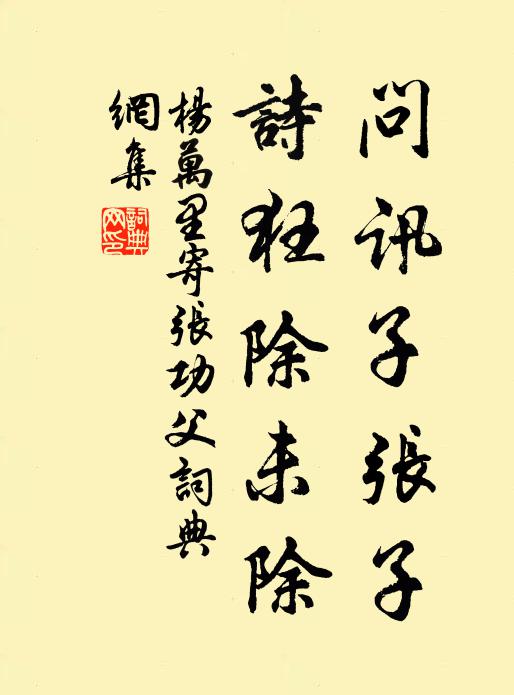 問訊子張子
詩狂除未除
楊萬里寄張功父詞典
網集
詞典
网印